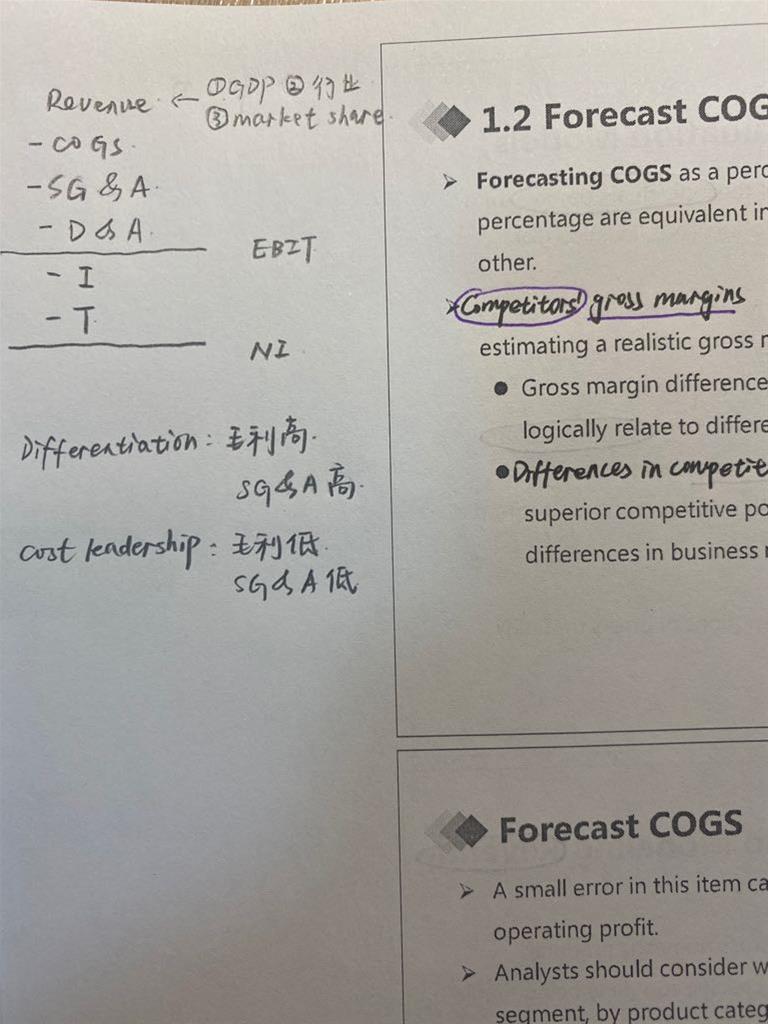 Revenue ← ①GDP ②行业
③market share.
- COGS.
- SG & A.
- D & A.
EBIT
- I
- T.
NI
Differentiation: 毛利高.
SG & A 高.
Cost leadership: 毛利低.
SG & A 低
1.2 Forecast COG
➢ Forecasting COGS as a perc
percentage are equivalent in
other.
➢ Competitors' gross margins
estimating a realistic gross
● Gross margin difference
logically relate to differe
● Differences in competit
superior competitive po
differences in business
Forecast COGS
➢ A small error in this item ca
operating profit.
➢ Analysts should consider w
segment, by product categ